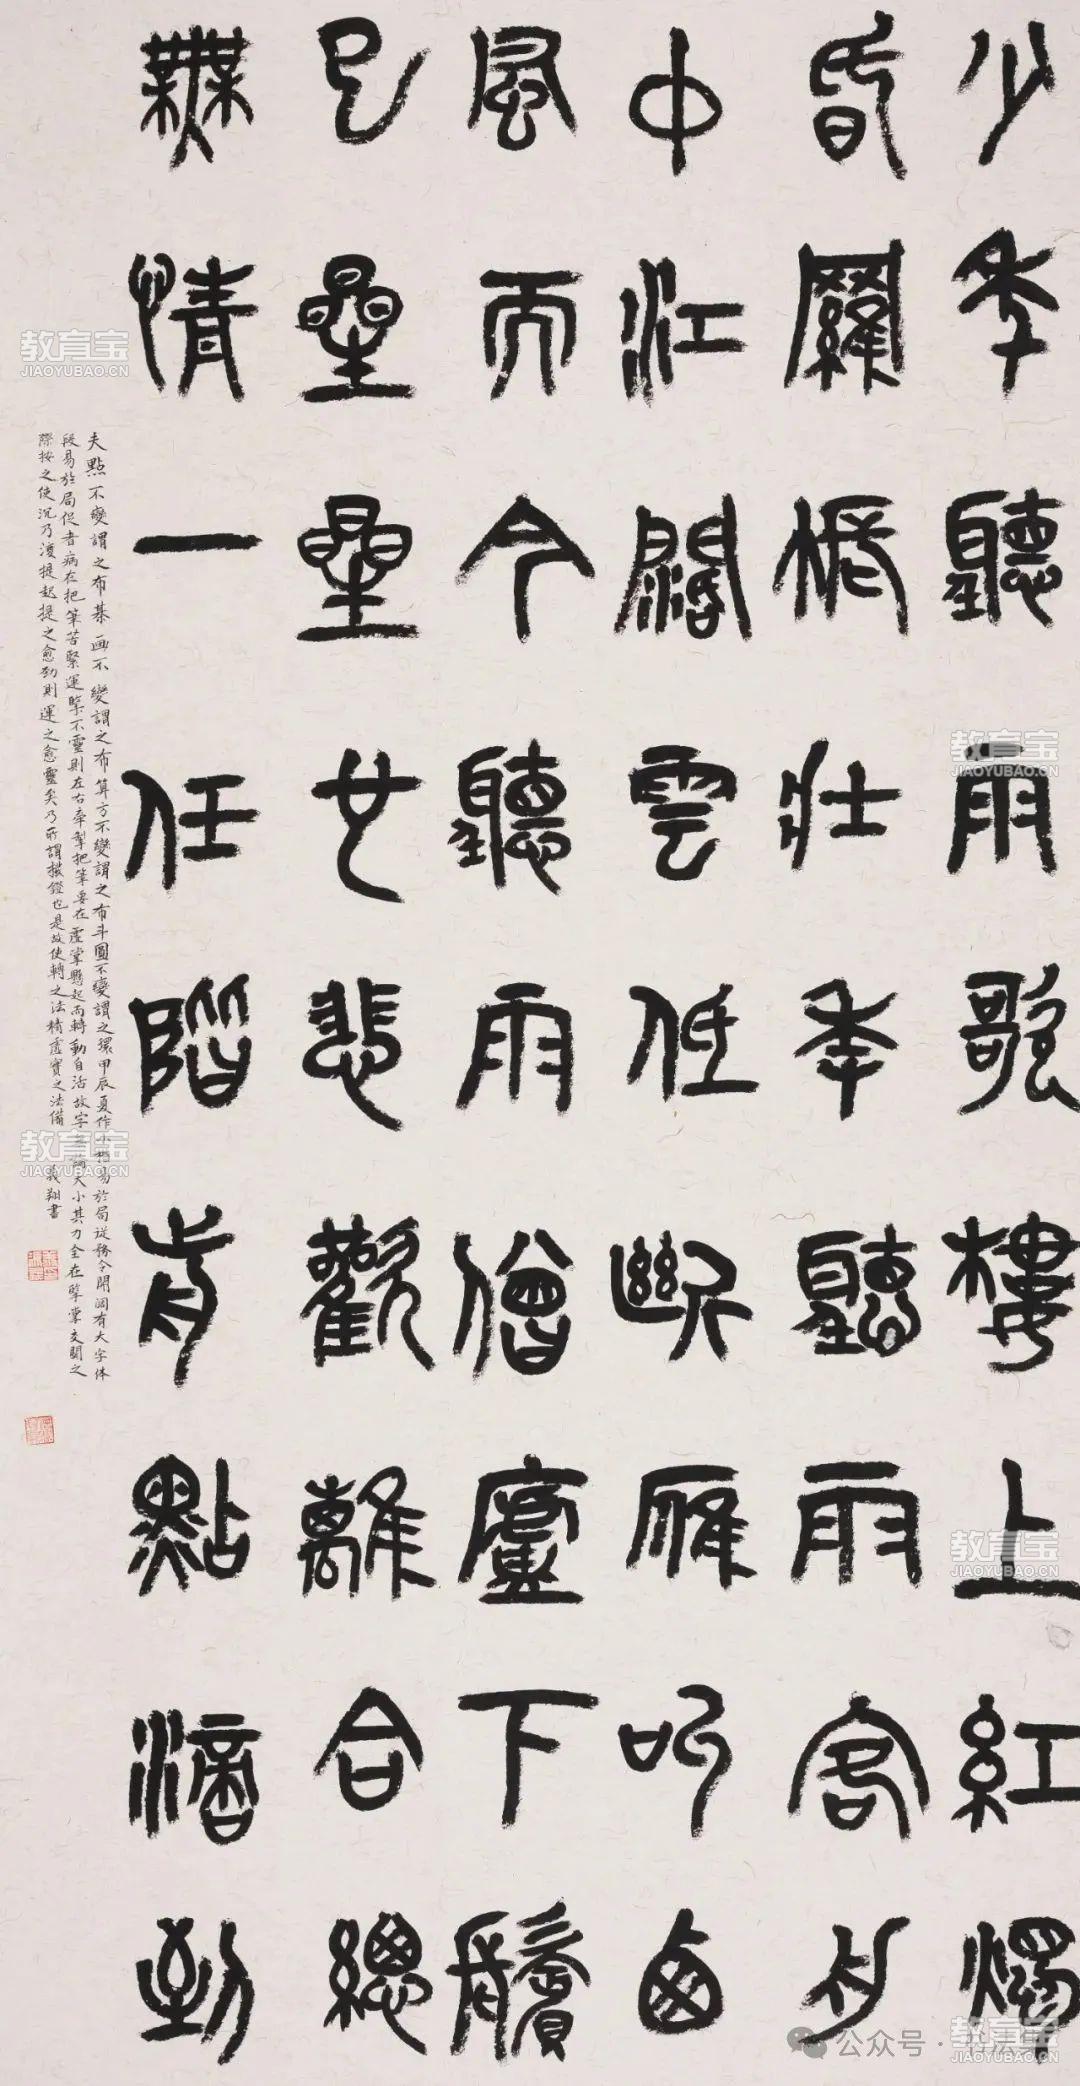 少年聽雨歌樓上紅燭
昏羅帳壯年聽雨客舟
中江闊雲低斷雁叫西
風而今聽雨僧廬下鬢
已星星也悲歡離合總
無情一任階前點滴到
夫點不變謂之布棊画不變謂之布算方不變謂之布斗圓不變謂之環甲辰夏作小楷易於局促務令開闊有大字体
段易於局促者病在把筆苦緊運掔不靈則左右牽掣把筆要在虛掌懸起而轉動自活故字無論大小其力全在掔掌交關之
際按之使沉乃復提起提之愈勁則運之愈靈矣乃所謂撥鐙也是故使轉之法精虛實之法備
義翔書
教育宝
JIAOYUBAO.CN
教育宝
JIAOYUBAO.CN
教育宝
JIAOYUBAO.CN
教育宝
JIAOYUBAO.CN
教育宝
JIAOYUBAO.CN
公众号